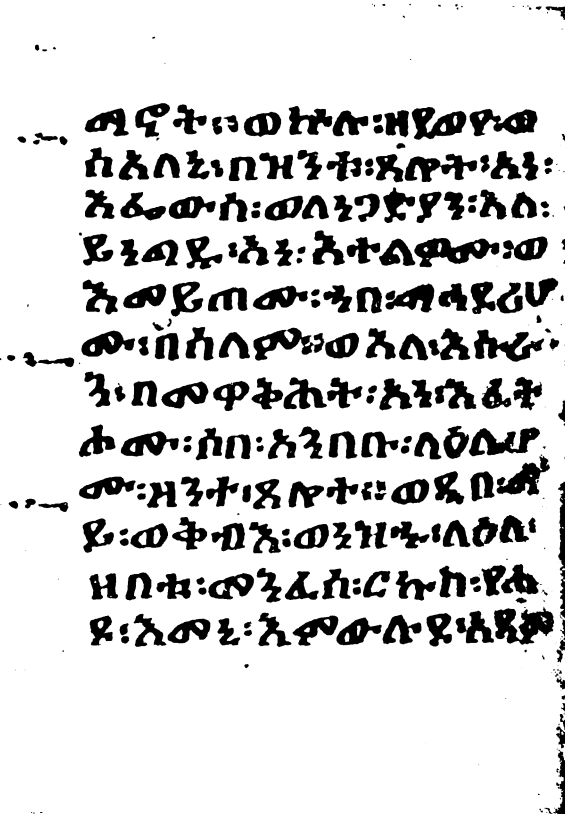 ማኖት። ወኵሉ፡ ዘይወፅ፡ ወ
ስእለኒ፡ በዝንቱ፡ ጸሎት፡ አነ፡
እፌውስ፡ ወለንጋድያን፡ እለ፡
ይነግዱ፡ አነ፡ እተልዎሙ፡ ወ
እመይጠሙ፡ ኀበ፡ ማኅደሪሆ
ሙ፡ በሰላም። ወእለ፡ እሱራ
ን፡ በመዋቅሕት፡ አነ፡ እፈት
ሖሙ፡ ሰበ፡ አንበቡ፡ ላዕሌሆ
ሙ፡ ዘንተ፡ ጸሎተ። ወዲበ፡ ማ
ይ፡ ወቅብእ፡ ወንዝኁ፡ ላዕለ፡
ዘበቱ፡ መንፈስ፡ ርኩስ፡ የሐ
ዩ፡ እመኒ፡ እምውሉደ፡ አዳም